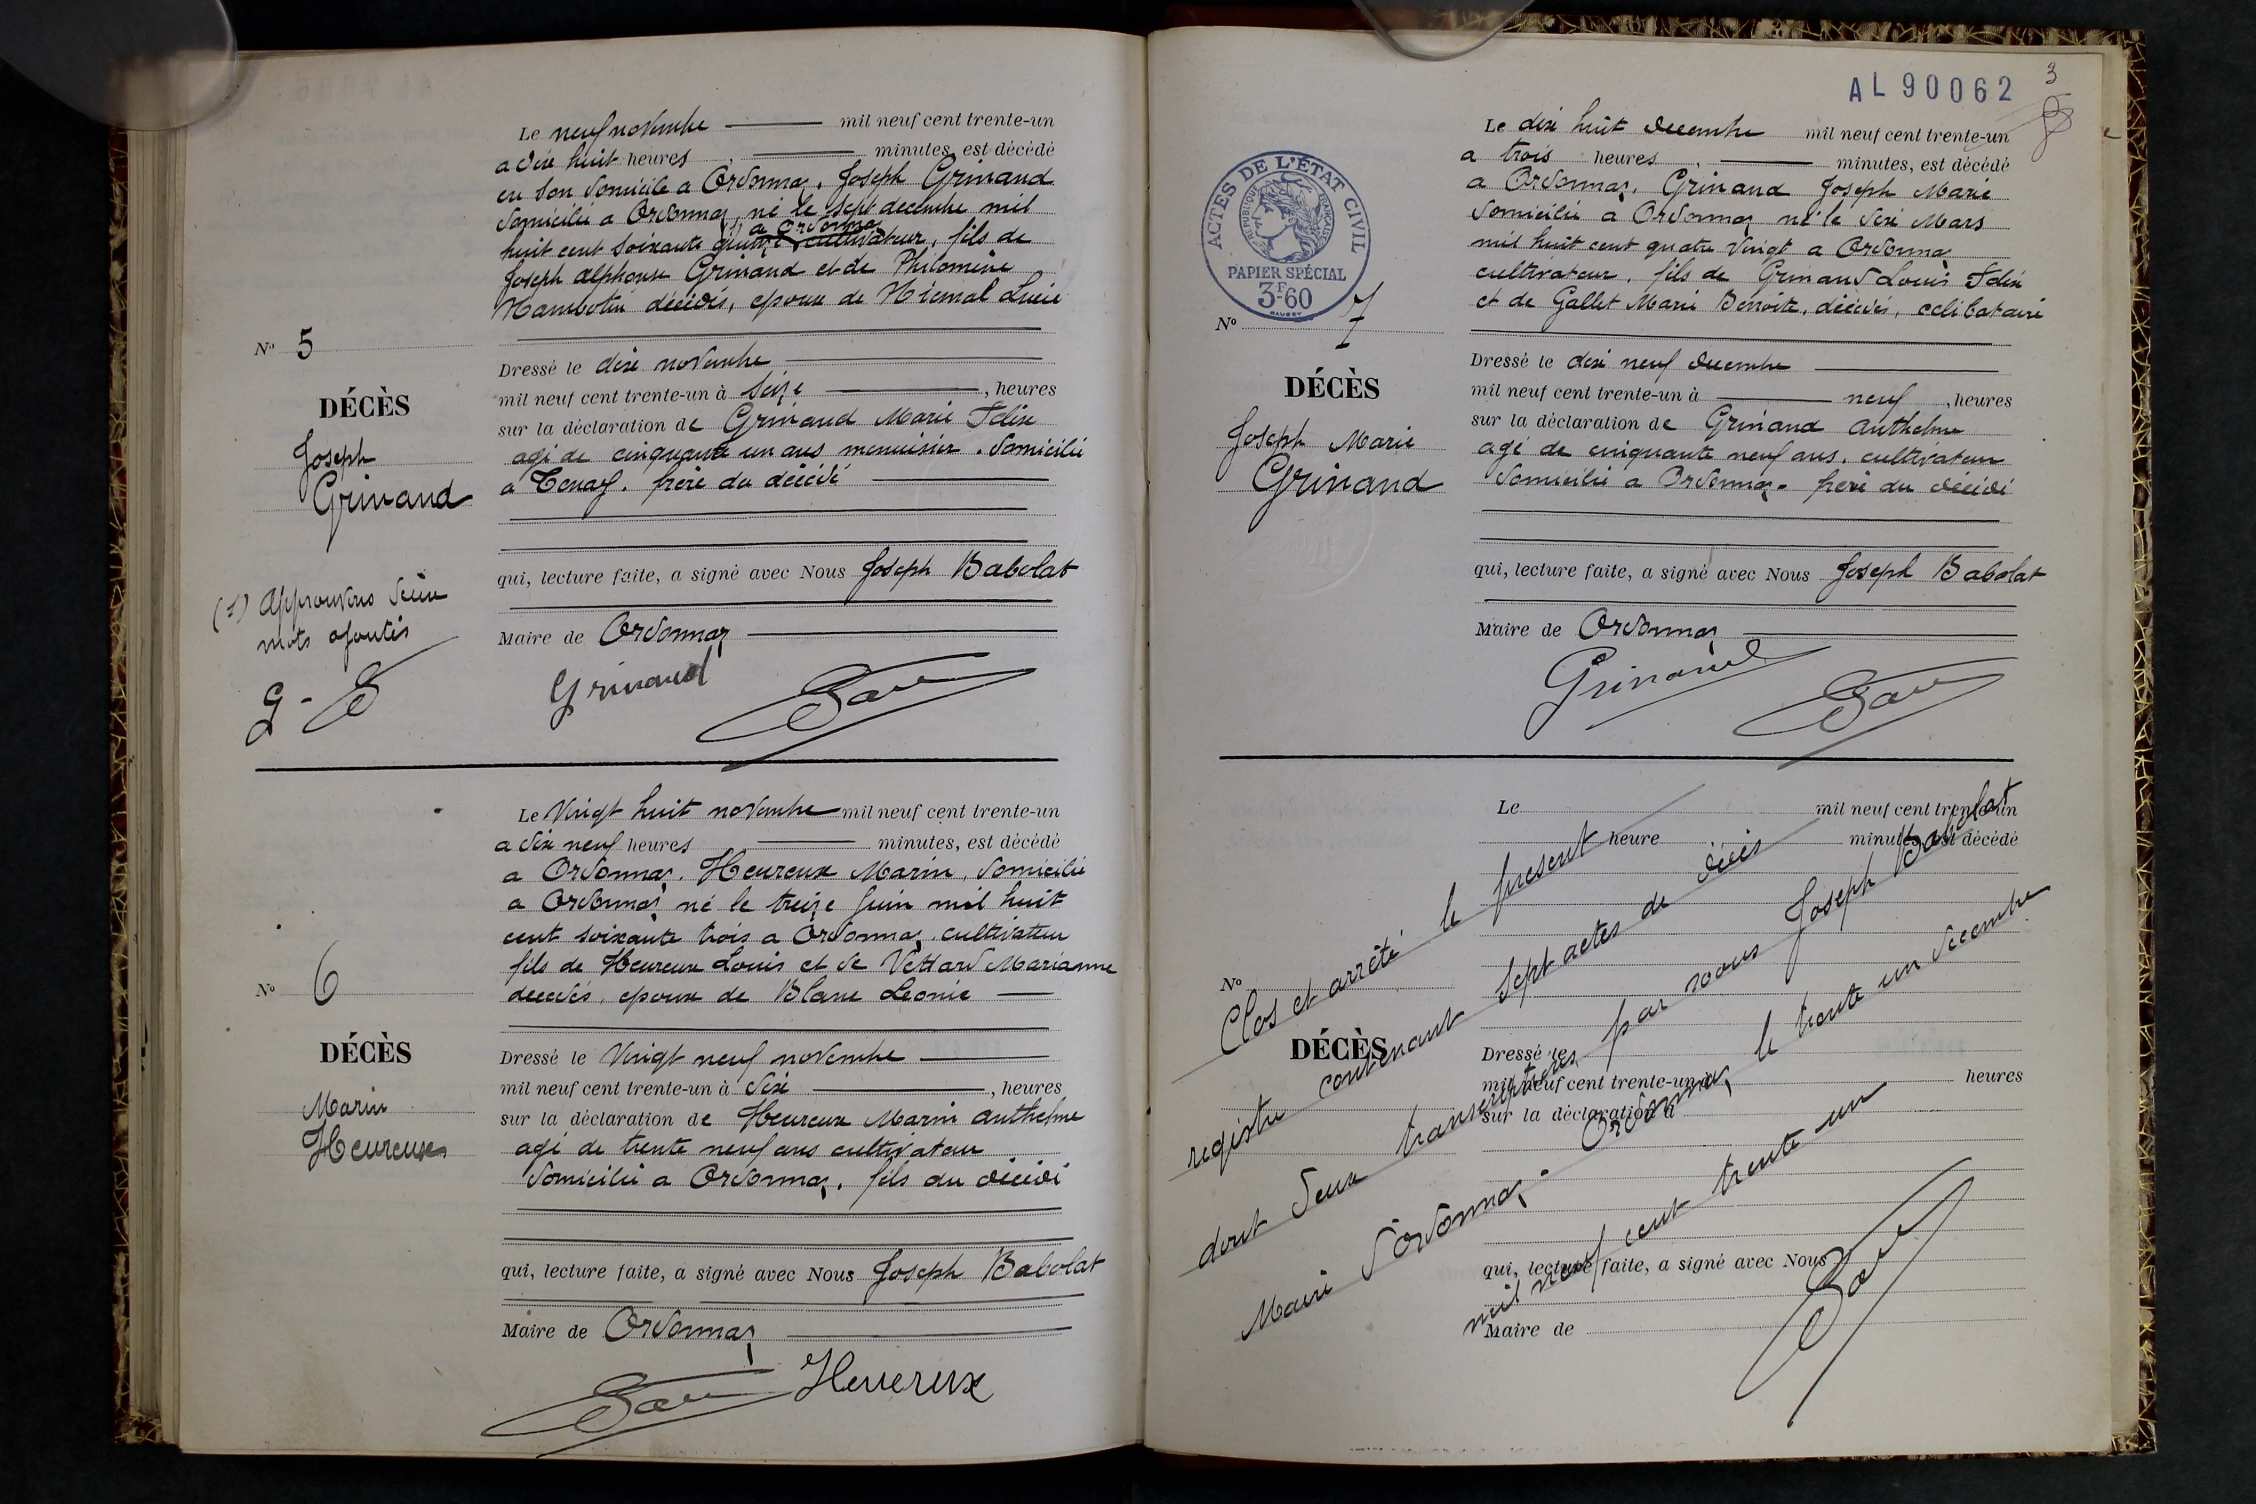 Le neuf novembre mil neuf cent trente-un
a dix huit heures minutes, est décédé
en son domicile a Ordonnaz, Joseph Grinand
domicilié a Ordonnaz, né le sept decembre mil
(1) a Ordonnaz
huit cent soixante quinze cultivateur, fils de
Joseph Alphonse Grinand et de Philomène
Mambotin décédés, epoux de Niemal Lucie
N° 5
DÉCÈS
Joseph
Grinand
Dressé le dix novembre
mil neuf cent trente-un à seize, heures
sur la déclaration de Grinand Marie Félix
agé de cinquante un ans menuisier. domicilié
a Tenay. frère du décédé
qui, lecture faite, a signé avec Nous Joseph Babolat
Maire de Ordonnaz
(1) Approuvons deux
mots ajoutés
G - B
Grinand
Bab
Le Vingt huit novembre mil neuf cent trente-un
a dix neuf heures minutes, est décédé
a Ordonnaz. Heureux Marin, domicilié
a Ordonnaz né le treize Juin mil huit
cent soixante trois a Ordonnaz, cultivateur
fils de Heureux Louis et de Vettard Marianne
décédés, epoux de Blanc Leonie
N° 6
DÉCÈS
Marin
Heureux
Dressé le Vingt neuf novembre
mil neuf cent trente-un à dix, heures
sur la déclaration de Heureux Marin Anthelme
agé de trente neuf ans cultivateur
domicilié a Ordonnaz, fils du décédé
qui, lecture faite, a signé avec Nous Joseph Babolat
Maire de Ordonnaz
Bab
Heuereux
AL 90062
3
ACTES DE L'ÉTAT CIVIL
RÉPUBLIQUE FRANÇAISE
PAPIER SPÉCIAL
3F.60
Le dix huit decembre mil neuf cent trente-un
a trois heures minutes, est décédé
a Ordonnaz, Grinand Joseph Marie
domicilié a Ordonnaz né le dix Mars
mil huit cent quatre vingt a Ordonnaz
cultivateur, fils de Grinand Louis Félix
et de Gallet Marie Benoite, décédés, célibataire
N° 7
DÉCÈS
Joseph Marie
Grinand
Dressé le dix neuf decembre
mil neuf cent trente-un à neuf, heures
sur la déclaration de Grinand Anthelme
agé de cinquante neuf ans, cultivateur
domicilié a Ordonnaz. frère du décédé
qui, lecture faite, a signé avec Nous Joseph Babolat
Maire de Ordonnaz
Grinand
Bab
Le mil neuf cent trente-un
heure minutes, est décédé
N°
DÉCÈS
Dressé le
mil neuf cent trente-un à heures
sur la déclaration d
qui, lecture faite, a signé avec Nous
Maire de
Clos et arrêté le present
registre contenant sept actes de décès
dont deux transcriptions par nous Joseph Babolat
Maire d'Ordonnaz. Ordonnaz le trente un decembre
mil neuf cent trente un
Bab